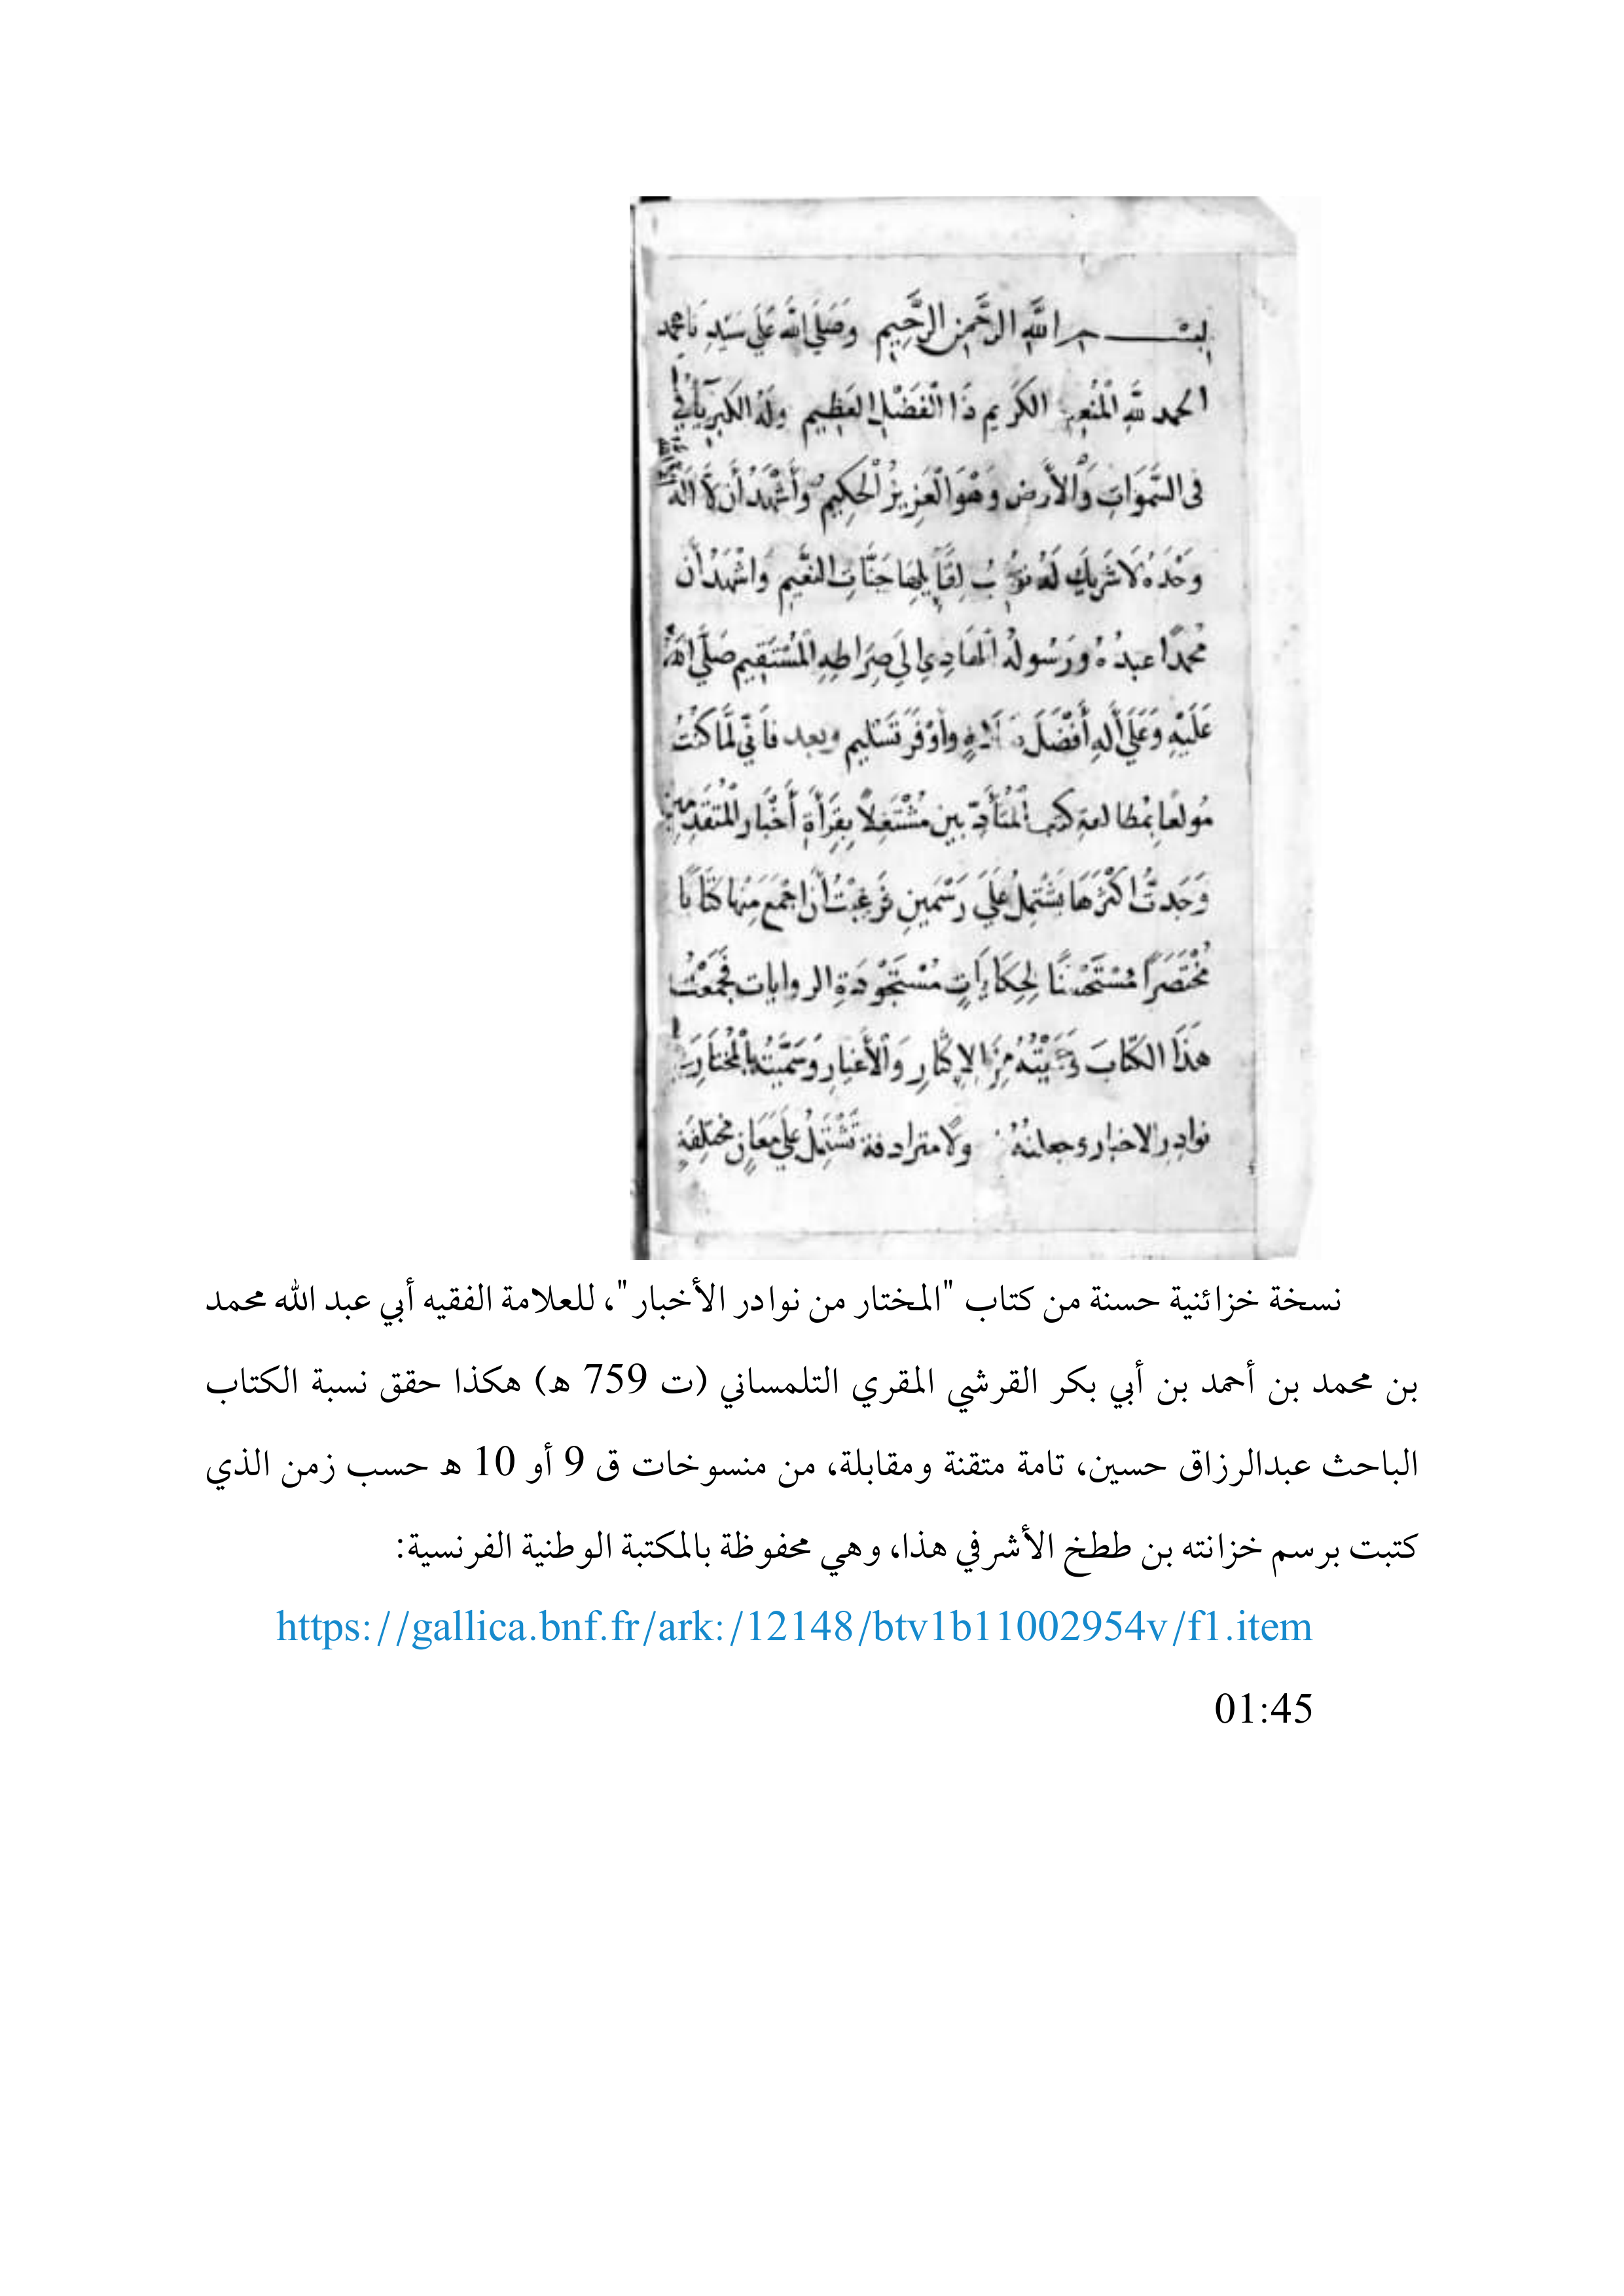 بسم الله الرحمن الرحيم وصلى الله على سيدنا محمد
الحمد لله المنعم الكريم ذا الفضل العظيم وله الكبرياء
في السموات والأرض وهو العزيز الحكيم وأشهد أن لا إله
وحده لا شريك له جنات النعيم وأشهد أن
محمدا عبده ورسوله الهادي إلى صراطه المستقيم صلى الله
عليه وعلى أله أفضل وأوفر تسليم وبعد فأني لما كنت
مولعا بمطالعة كتب المتأدبين مشتغلا بقرأة أخبار المتقدمين
وجدت أكثرها يشتمل على رسمين فرغبت أن اجمع منها كتابا
مختصرا مستحسنا لحكايات مستجودة الروايات فجمعت
هذا الكتاب من الإكثار والأغيار وسميته بالمختار
نوادر الاخبار وجعلته ولا مترادفة تشتمل على معان مختلفة
نسخة خزائنية حسنة من كتاب "المختار من نوادر الأخبار"، للعلامة الفقيه أبي عبد الله محمد
بن محمد بن أحمد بن أبي بكر القرشي المقري التلمساني (ت 759 ه) هكذا حقق نسبة الكتاب
الباحث عبدالرزاق حسين، تامة متقنة ومقابلة، من منسوخات ق 9 أو 10 ه حسب زمن الذي
كتبت برسم خزانته بن ططخ الأشرفي هذا، وهي محفوظة بالمكتبة الوطنية الفرنسية:
https://gallica.bnf.fr/ark:/12148/btv1b11002954v/f1.item
01:45